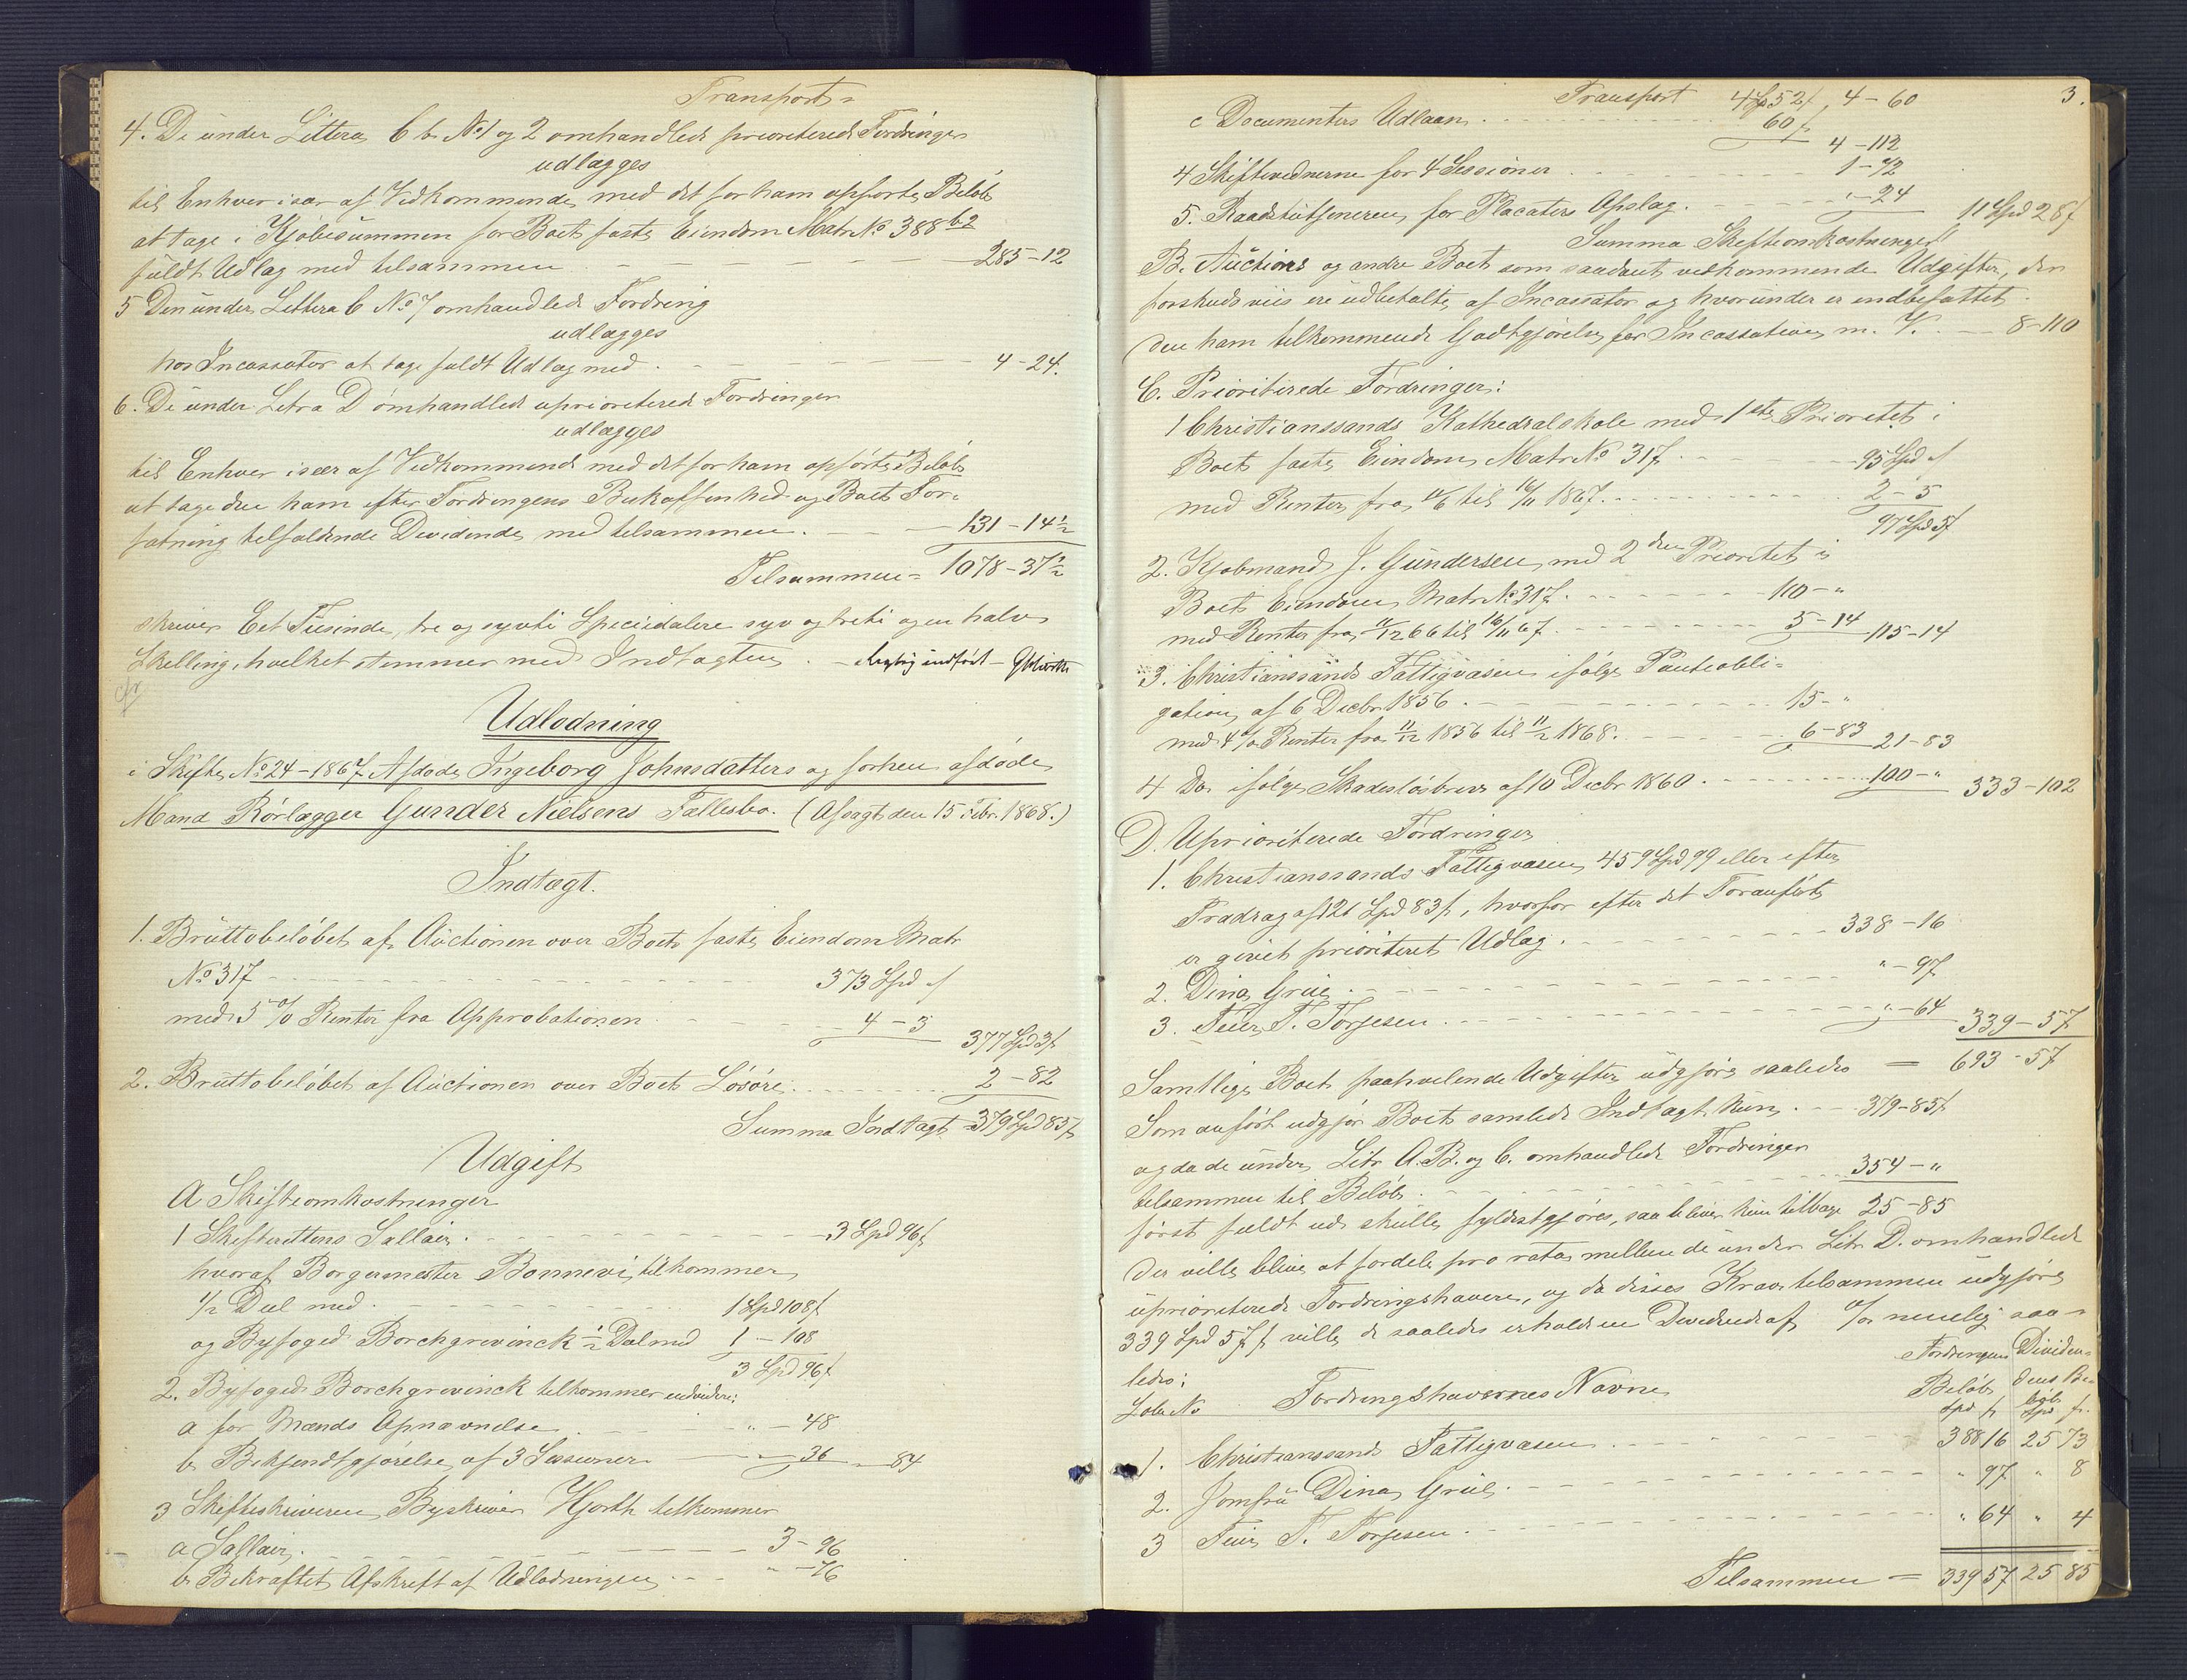 Transport =
4. De under Littera C b No 1 og 2 omhandlede prioriterede Fordringer
udlægges
til Enhver især af Vedkommende, med det for ham opførte Beløb
at tage i Kjøbesummen for Boets faste Eiendom Matr No 388 b2
fuldt Udlæg med tilsammen - - - - 285-12
5 Den under Littera C No 7 omhandlede Fordring
udlægges
hos Incassator at tage fuldt Udlæg med . - - - 4-24.
6. De under Litra D omhandlede uprioriterede Fordringer
udlægges
til Enhver især af Vedkommende med det for ham opførte Beløb
at tage den ham efter Fordringens Beskaffenhed og Boets For=
fatning tilfaldende Dividende, med tilsammen. - - 131-14½
Tilsammen = 1078-37½
skriver Eet Tusinde, tre og syvti Speciedalere syv og treti og en halv
Skilling, hvilket stemmer med Indtægten. - Rigtig indført - GHiorth
cfr
Udlodning
i Skifte No 24-1867 Afdøde Ingeborg Johnsdatters og forhen afdøde
Mand Rørlægger Gunder Nielsens Fællesbo. (Afsagt den 15 Febr. 1868.)
Indtægt.
1. Bruttobeløbet af Auctionen over Boets faste Eiendom Matr
No 317 - - - - 373 Spd "
med 5 % Renter fra Approbationen - - - 4-3
377 Spd 3 s
2. Bruttobeløbet af Auctionen over Boets Løsøre. - - - 2-82
Summa Indtægt = 379 Spd 85 s
Udgift
A Skifteomkostninger
1 Skifterettens Sallair. - - - - 3 Spd 96 s
hvoraf Borgermester Bonnevi, tilkommer
½ Deel med . - - - 1 Spd 108 s
og Byfoged Borchgrevinck ½ Del med 1-108
3 Spd 96 s
2. Byfoged Borchgrevinck tilkommer endvidere:
a for Mænds Opnævnelse . - - - " - 48
b Bekjendtgjørelse af 3 Sessioner - - " - 36 " - 84
3 Skifteskriveren, Byskriver Hjorth tilkommer
a Sallair. - - - - 3-96
b Bekræftet Afskrift af Udlodningen - - " - 76
3.
Transport 4 Sp 52 s, 4-60
c Documenters Udlaan, . - - - 60 s
4-112
4 Skiftevidnerne for 4 Sessioner - - - 1-72
5. Raadstutjeneren, for Placaters Opslag. - - - " - 24
11 Spd 28 s
Summa Skifteomkostninger
B. Auctions og andre Boet som saadant vedkommende Udgifter, der
forskudsviis ere udbetalte af Incassator og hvorunder er indbefattet
den ham tilkommende Godtgjørelse for Incassation, m. V. - - 8-110
C. Prioriterede Fordringer:
1 Christianssands Kathedralskole med 1ste Prioritet i
Boets faste Eiendom, Matr No 317 . - - 95 Spd "
med Renter fra 11/6 til 16/11 1867. - - - 2-5
97 Spd 5 s
2. Kjøbmand J. Gundersen, med 2den Prioritet i
Boets Eiendom Matr No 317. - - - 110-"
med Renter fra 11/12 66 til 16/11 67. - - - 5-14 115-14
3. Christianssands Fattigvæsen ifølge Panteobli=
gation, af 6 Decbr 1856. - - - 15-"
med 4 % Renter fra 11/12 1856 til 11/2 1868. - - - 6-83 21-83
4 Do ifølge Skadesløsbrev af 10 Decbr 1860. - - - 100-" 333-102
D. Uprioriterede Fordringer
1. Christianssands Fattigvæsen, 459 Spd 99 eller efter
Fradrag af 121 Spd 83 s, hvorfor efter det Foranførte
er givet prioriteret Udlæg. - - - 338-16
2. Dina Grüe, . - - - " - 97
3. Feier T. Torjesen. - - - " - 64 339-57
Samtlige Boet paahvilende Udgifter udgjøre saaledes = 693-57
Som anført udgjør Boets samlede Indtægt kun. - - 379-85 s
og da de under Litr A. B. og C. omhandlede Fordringer
tilsammen til Beløb. - - - 354-"
først fuldt ud skulle fyldestgjøres, saa bliver kun tilbage 25-85
der ville blive at fordele pro rata mellem de under Litr D. omhandlede
uprioriterede Fordringshavere, og da disses Krav tilsammen udgjøre
339 Spd 57 s, ville de saaledes erholde en Dividende af % nemlig saa=
ledes:
Lobe No Fordringshavernes Navne Fordringens Beløb Spd s Dividendens Beløb Spd s.
1. Christianssands Fattigvæsen . - - - 388 16 25 73
2. Jomfru Dina Grüe. - - - " 97 " 8
3 Feier T. Torjesen. - - - " 64 " 4
Tilsammen = 339 57 25 85